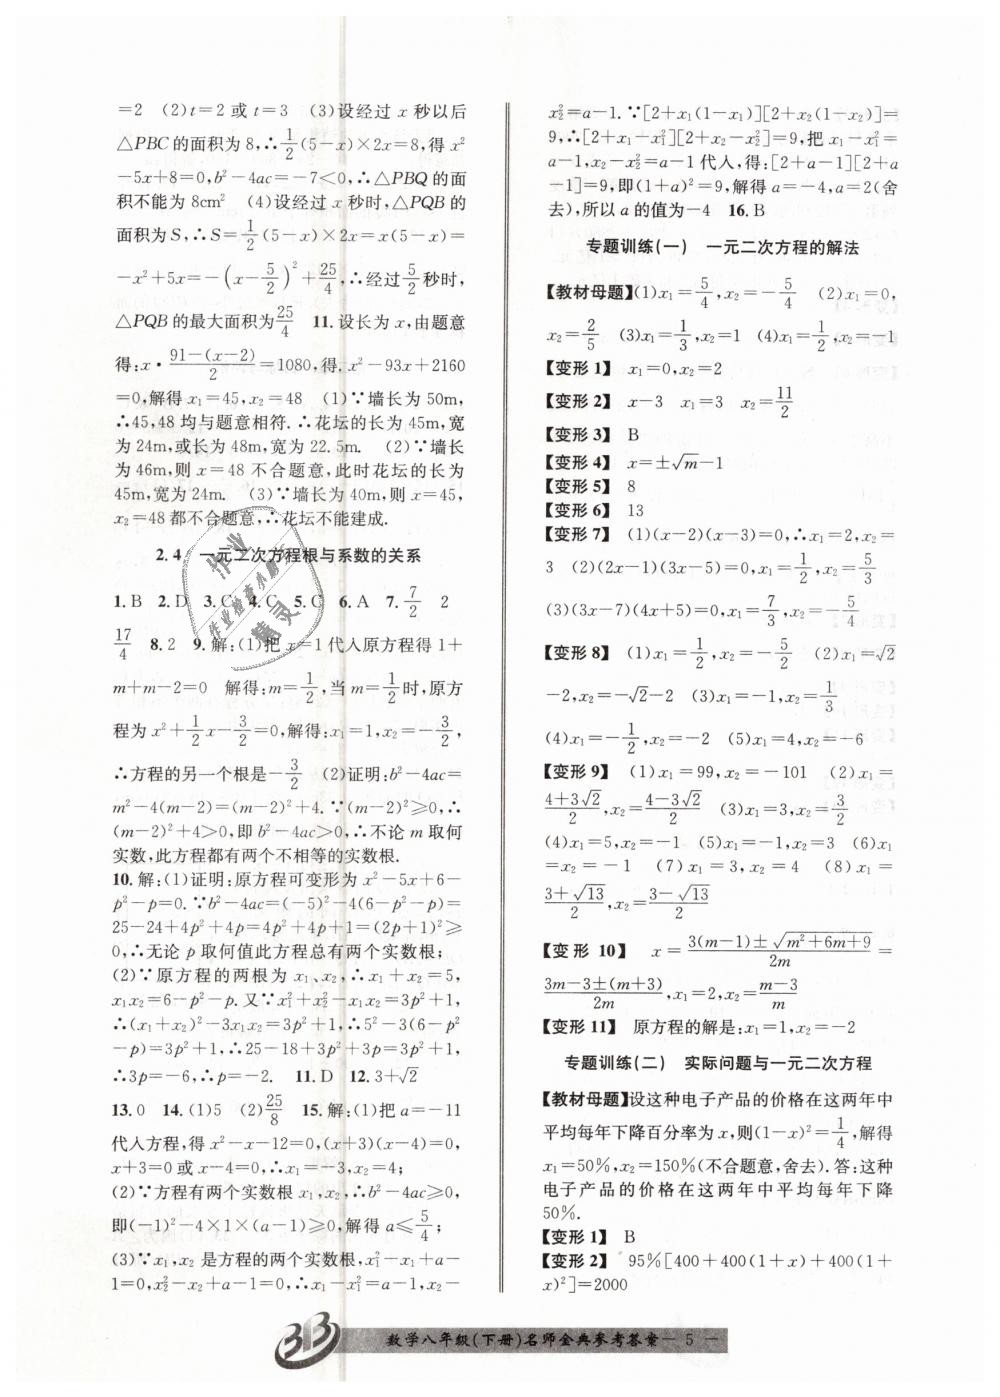 =2　(2)t=2或t=3　(3)设经过x秒以后
△PBC的面积为8,∴1/2(5-x)×2x=8,得x²
-5x+8=0,b²-4ac=-7<0,∴△PBQ的面
积不能为8cm²　(4)设经过x秒时,△PQB的
面积为S,∴S=1/2(5-x)×2x=x(5-x)=
-x²+5x=-(x-5/2)²+25/4,∴经过5/2秒时,
△PQB的最大面积为25/4　11.设长为x,由题意
得:x·(91-(x-2))/2=1080,得.x²-93x+2160
=0,解得x₁=45,x₂=48　(1)∵墙长为50m,
∴45,48均与题意相符.∴花坛的长为45m,宽
为24m,或长为48m,宽为22.5m.　(2)∵墙长
为46m,则x=48不合题意,此时花坛的长为
45m,宽为24m.　(3)∵墙长为40m,则x=45,
x₂=48都不合题意,∴花坛不能建成.
2.4　一元二次方程根与系数的关系
1.B　2.D　3.C　4.C　5.C　6.A　7.7/2　2
17/4　8.2　9.解:(1)把x=1代入原方程得1+
m+m-2=0　解得:m=1/2,当m=1/2时,原方
程为x²+1/2x-3/2=0,解得:x₁=1,x₂=-3/2,
∴方程的另一个根是-3/2　(2)证明:b²-4ac=
m²-4(m-2)=(m-2)²+4.∵(m-2)²≥0,∴
(m-2)²+4>0,即b²-4ac>0,∴不论m取何
实数,此方程都有两个不相等的实数根.
10.解:(1)证明:原方程可变形为x²-5x+6-
p²-p=0.∵b²-4ac=(-5)²-4(6-p²-p)=
25-24+4p²+4p=4p²+4p+1=(2p+1)²≥
0,∴无论p取何值此方程总有两个实数根;
(2)∵原方程的两根为x₁、x₂,∴x₁+x₂=5,
x₁x₂=6-p²-p.又∵x₁²+x₂²-x₁x₂=3p²+1,
∴(x₁+x₂)²-3x₁x₂=3p²+1,∴5²-3(6-p²
-p)=3p²+1,∴25-18+3p²+3p=3p²+1,
∴3p=-6,∴p=-2.　11.D　12.3+√2
13.0　14.(1)5　(2)25/8　15.解:(1)把a=-11
代入方程,得x²-x-12=0,(x+3)(x-4)=0,
x+3=0或x-4=0,∴x₁=-3,x₂=4;
(2)∵方程有两个实数根x₁,x₂,∴b²-4ac≥0,
即(-1)²-4×1×(a-1)≥0,解得a≤5/4;
(3)∵x₁,x₂是方程的两个实数根,x₁²-x₁+a-
1=0,x₂²-x₂+a-1=0,∴x₁-x₁²=a-1,x₂-
x₂²=a-1.∵[2+x₁(1-x₁)][2+x₂(1-x₂)]=
9,∴[2+x₁-x₁²][2+x₂-x₂²]=9,把x₁-x₁²=
a-1,x₂-x₂²=a-1代入,得:[2+a-1][2+a
-1]=9,即(1+a)²=9,解得a=-4,a=2(舍
去),所以a的值为-4　16.B
专题训练(一)　一元二次方程的解法
【教材母题】(1)x₁=5/4,x₂=-5/4　(2)x₁=0,
x₂=2/5　(3)x₁=1/3,x₂=1　(4)x₁=1/2,x₂=-1
【变形1】　x₁=0,x₂=2
【变形2】　x-3　x₁=3　x₂=11/2
【变形3】　B
【变形4】　x=±√m-1
【变形5】　8
【变形6】　13
【变形7】　(1)(x-2)(x-3)=0,∴x₁=2,x₂=
3　(2)(2x-1)(3x-5)=0,x₁=1/2,x₂=5/3
(3)(3x-7)(4x+5)=0,x₁=7/3,x₂=-5/4
【变形8】　(1)x₁=1/2,x₂=-5/2　(2)x₁=√2
-2,x₂=-√2-2　(3)x₁=-1,x₂=1/3
(4)x₁=-1/2,x₂=-2　(5)x₁=4,x₂=-6
【变形9】　(1)x₁=99,x₂=-101　(2)x₁=
(4+3√2)/2,x₂=(4-3√2)/2　(3)x₁=3,x₂=3/2
(4)x₁=5,x₂=-1　(5)x₁=-1,x₂=3　(6)x₁
=x₂=-1　(7)x₁=3,x₂=4　(8)x₁=
(3+√13)/2,x₂=(3-√13)/2
【变形10】　x=(3(m-1)±√(m²+6m+9))/2m=
(3m-3±(m+3))/2m,x₁=2,x₂=(m-3)/m
【变形11】　原方程的解是:x₁=1,x₂=-2
专题训练(二)　实际问题与一元二次方程
【教材母题】设这种电子产品的价格在这两年中
平均每年下降百分率为x,则(1-x)²=1/4,解得
x₁=50%,x₂=150%(不合题意,舍去).答:这种
电子产品的价格在这两年中平均每年下降
50%.
【变形1】　B
【变形2】　95%[400+400(1+x)+400(1+
x)²]=2000
数学八年级(下册)名师金典参考答案 — 5 —
作业
作业检查小助
精灵